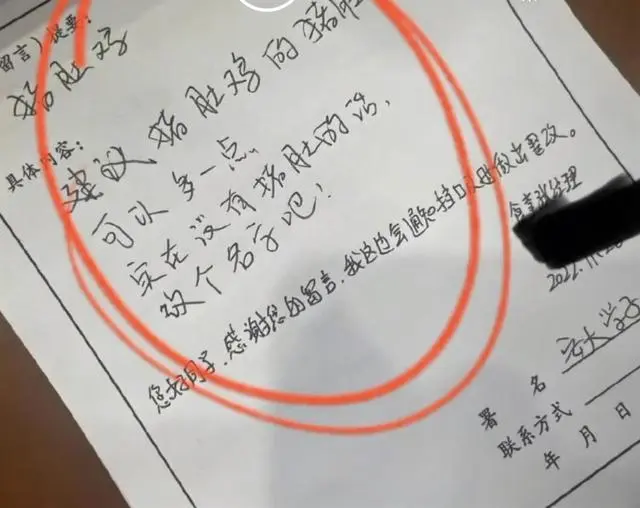 留言）提要：
猪肚鸡
具体内容：
建议猪肚鸡的猪肚
可以多一点
实在没有猪肚的话，
改个名字吧！
您好同学，感谢您的留言，我这边会通知档口及时做出整改。
食堂部经理
2022.11.28
署 名 安大学子
联系方式
年 月 日